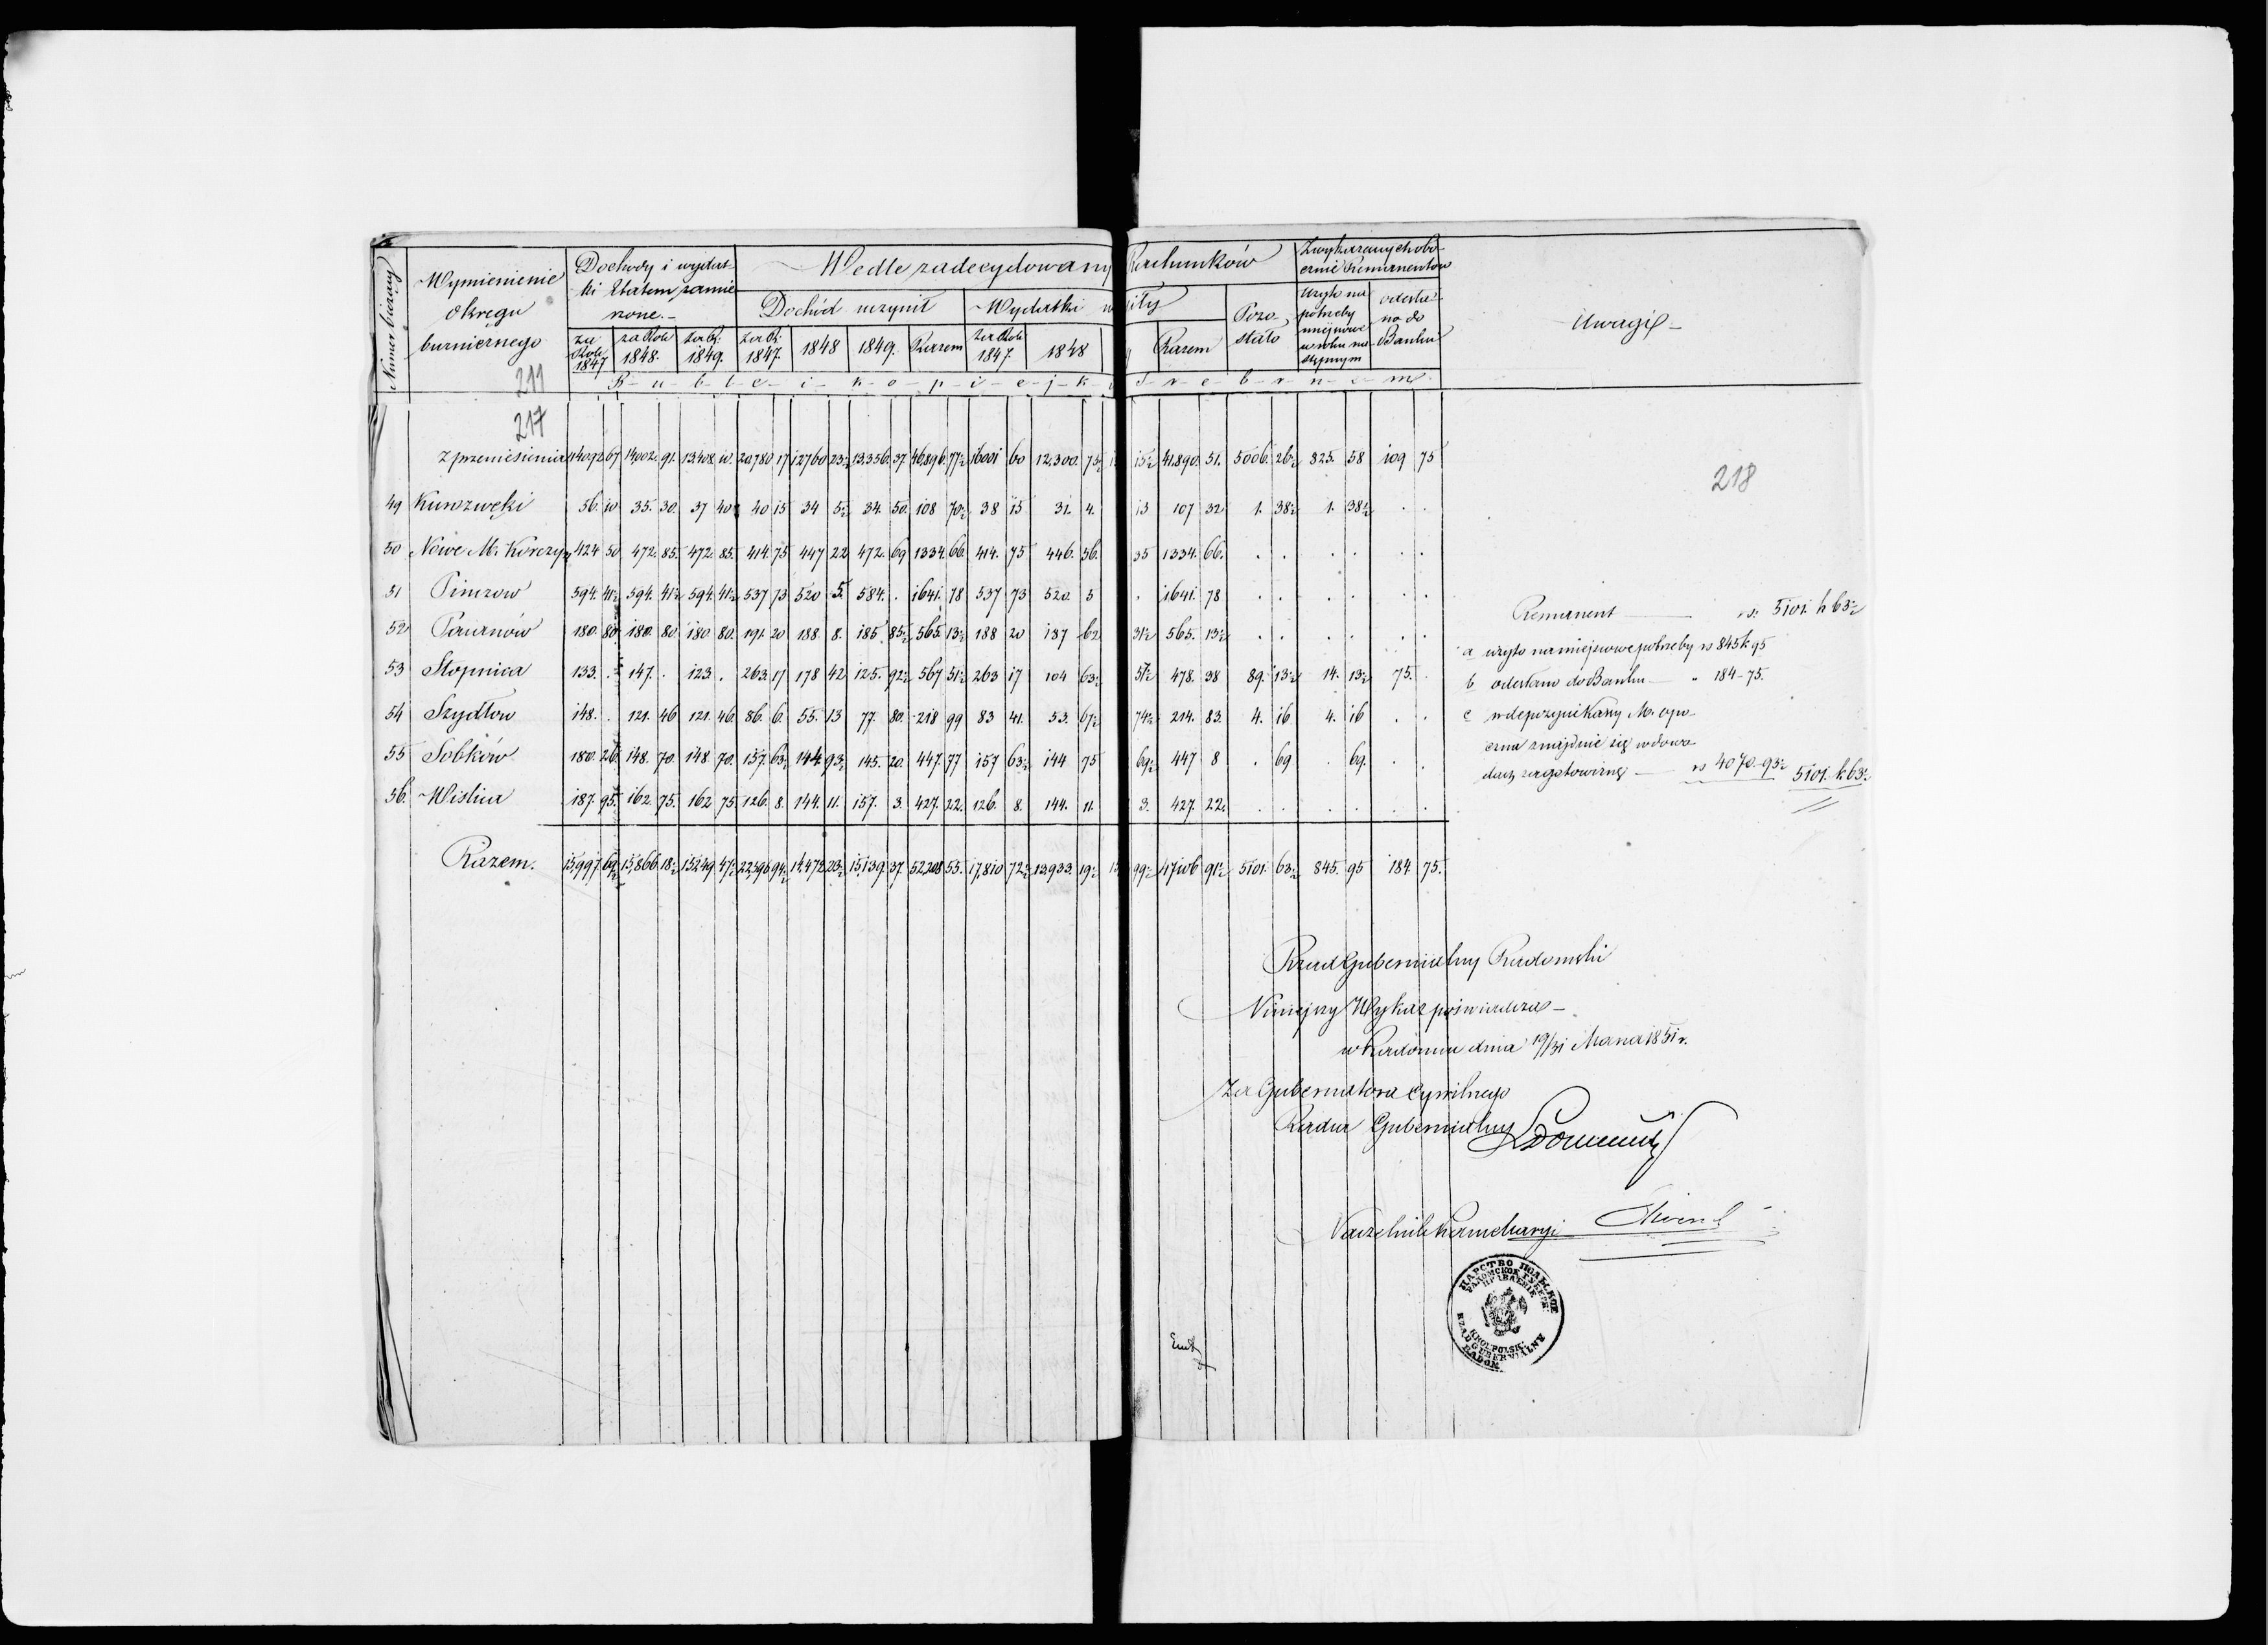 Numer bieżący
Wymienienie okręgu bużniczego
Dochody i wydatki Etatem zamierzone.
Wedle zadecydowany Rachunków
Z wykazanych obocznie Remanentów
Dochód uczynił
Wydatki
Pozostało
Użyto na potrzeby miejscowe w roku następnym
odesłano do Banku
Uwagi
za Rok 1847 za Rok 1848. za R. 1849. za R. 1847. 1848 1849. Razem za Rok 1847. 1848 Razem
R-u-b-l-e-i-k-o-p-i-e-j-k-i S-r-e-b-r-n-e-m
211
217
218
z przeniesienia 14092 67 14,002. 91. 13,408. 10. 20780 17 12760 23½ 13,356. 37. 46,896. 77½ 16001 60 12,300. 75½ 15½ 41.890. 51. 5006. 26½ 825. 58 109 75
49 Kurozwęki 56. 10 35. 30. 37 40 40 15 34 5½ 34. 50. 108 70½ 38 15 31. 4. 13 107 32 1. 38½ 1. 38½ . .
50 Nowe M. Korczyn 424 50 472. 85. 472. 85. 414. 75 447 22 472. 69 1334. 66. 414. 75 446. 56. 35 1334. 66. . . . . . .
51 Pinczow 594. 41½ 594. 41½ 594. 41½ 537 73 520 5. 584. . 1641. 78 537 73 520. 5 . 1641. 78 . . . . . .
52 Pacanów 180. 80. 180. 80. 180. 80. 191. 20 188. 8. 185. 85½ 565. 13½ 188 20 187 62 31½ 565. 13½ . . . . . .
53 Stopnica 133. . 147. . 123. . 263. 17 178 42 125. 92½ 567 51½ 263 17 104 63½ 57½ 478. 38 89. 13½ 14. 13½ 75. .
54 Szydłow 148. . 121. 46 121. 46. 86. 6. 55. 13 77. 80. 218 99 83 41. 53. 67½ 74½ 214. 83. 4. 16 4. 16 . .
55 Sobków 180. 26 148. 70. 148. 70. 157. 63½ 144. 93½ 145. 20. 447. 77 157 63½ 144 75 69½ 447 8 . 69 . 69. . .
56. Wislica 187. 95. 162. 75. 162 75. 126. 8. 144. 11. 157. 3. 427. 22. 126. 8. 144. 11. 3. 427. 22. . . . . . .
Razem. 15,997. 69½ 15,866. 18½ 15249 47½ 22,396 94½ 14,472 23½ 15,139 37. 52,208 55. 17,810 72½ 13,933. 19½ 99½ 47106 91½ 5101. 63½ 845. 95 184. 75.
Remanent rs. 5101. k 63½
a użyto na miejscowe potrzeby rs 845 k 95
b odesłano do Banku „ 184-75.
c w depozycie Kassy M. Opoczna znajduie się w dowodach za gotowiznę rs 4070. 93½ 5101. k 63½
Rząd Gubernialny Radomski
Niniejszy Wykaz poświadcza
w Radomiu dnia 19/31 Marca 1851 r.
Za Gubernatora Cywilnego
Radca Gubernialny
Naczelnik Kancelaryi
ЦАРСТВО ПОЛЬСКОЕ
РАДОМСКОЕ ГУБЕРН. ПРАВЛЕНІЕ
KROL. POLSK.
RZĄD GUBERNIALNY
RADOM